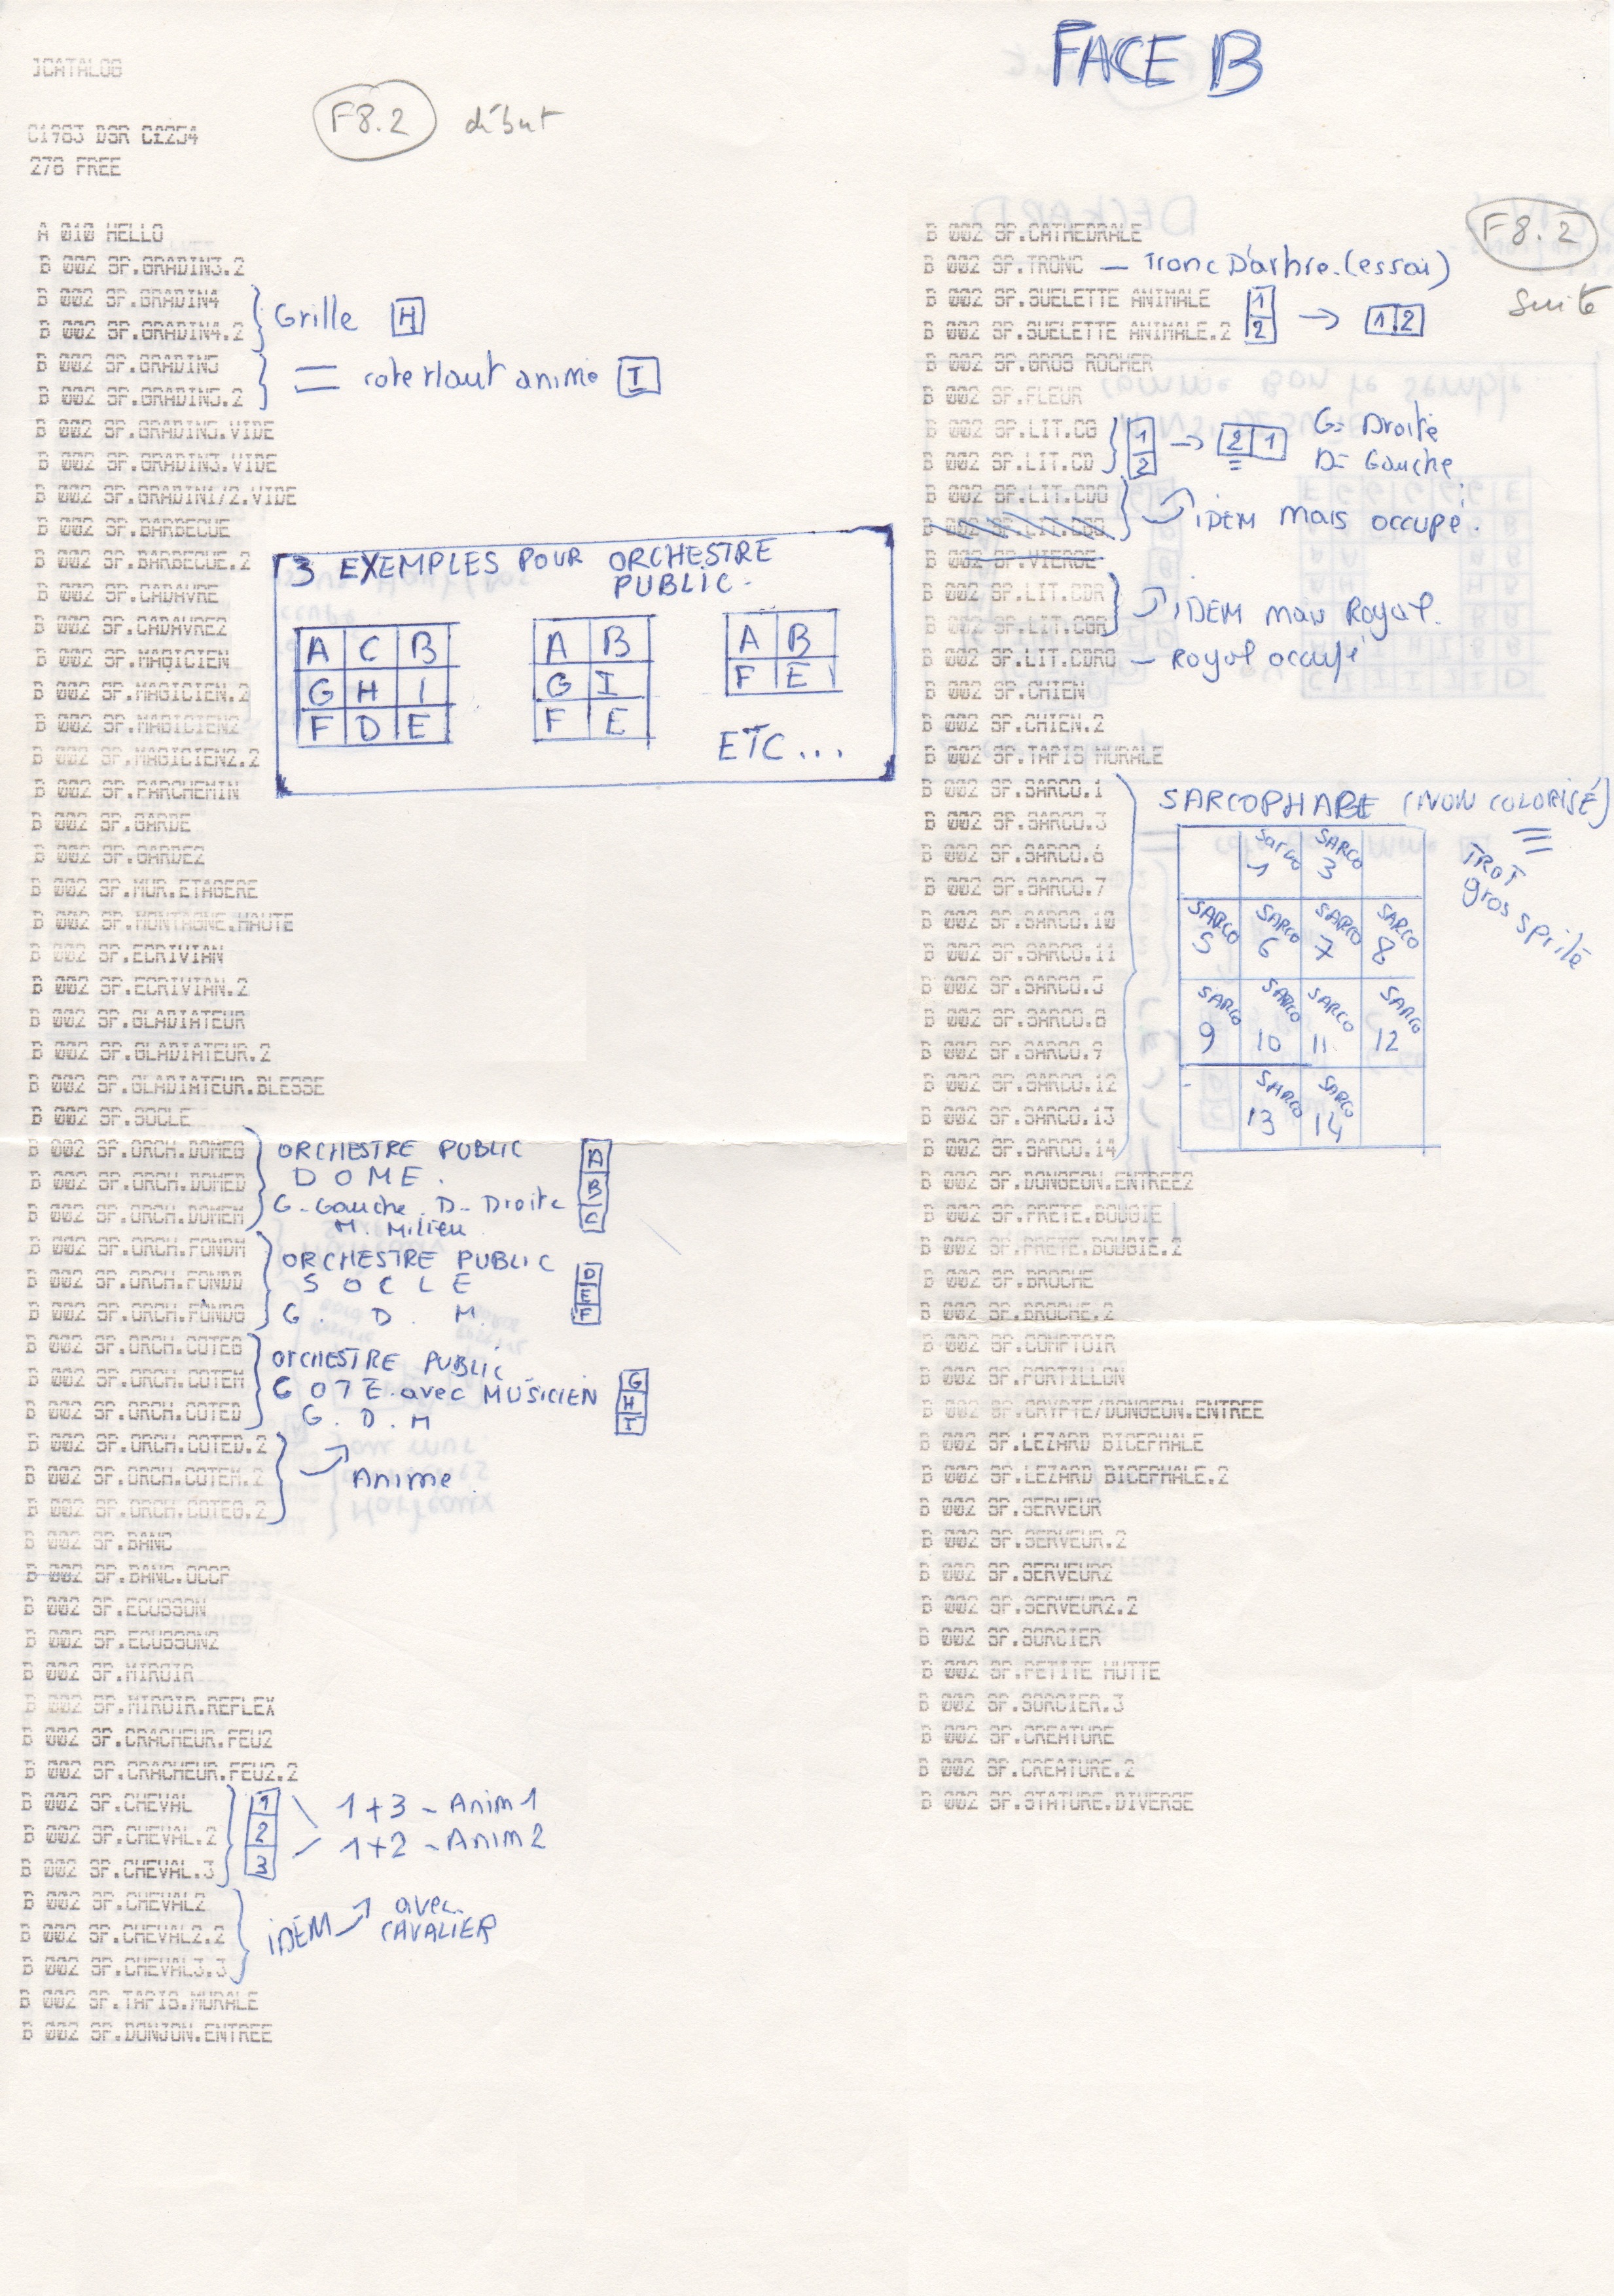 FACE B
]CATALOG
F8.2 début
C1983 DSR C#254
278 FREE
A 010 HELLO
B 002 SP.GRADIN3.2
B 002 SP.GRADIN4
B 002 SP.GRADIN4.2
Grille H
B 002 SP.GRADIN5
B 002 SP.GRADIN5.2
= cote Haut anime I
B 002 SP.GRADIN5.VIDE
B 002 SP.GRADIN3.VIDE
B 002 SP.GRADIN1/2.VIDE
B 002 SP.BARBECUE
B 002 SP.BARBECUE.2
B 002 SP.CADAVRE
B 002 SP.CADAVRE2
B 002 SP.MAGICIEN
B 002 SP.MAGICIEN.2
B 002 SP.MAGICIEN2
B 002 SP.MAGICIEN2.2
B 002 SP.PARCHEMIN
B 002 SP.GARDE
B 002 SP.GARDE2
B 002 SP.MUR.ETAGERE
B 002 SP.MONTAGNE.HAUTE
B 002 SP.ECRIVIAN
B 002 SP.ECRIVIAN.2
B 002 SP.GLADIATEUR
B 002 SP.GLADIATEUR.2
B 002 SP.GLADIATEUR.BLESSE
B 002 SP.SOCLE
3 EXEMPLES POUR ORCHESTRE
PUBLIC.
A C B
G H I
F D E
A B
G I
F E
A B
F E
ETC...
B 002 SP.ORCH.DOMEG
B 002 SP.ORCH.DOMED
B 002 SP.ORCH.DOMEM
ORCHESTRE PUBLIC
DOME.
G-Gauche. D-Droite
M. Milieu
A
B
C
B 002 SP.ORCH.FONDM
B 002 SP.ORCH.FONDD
B 002 SP.ORCH.FONDG
ORCHESTRE PUBLIC
SOCLE
G. D. M.
D
E
F
B 002 SP.ORCH.COTEG
B 002 SP.ORCH.COTEM
B 002 SP.ORCH.COTED
ORCHESTRE PUBLIC
COTE avec MUSICIEN
G. D. M
G
H
I
B 002 SP.ORCH.COTED.2
B 002 SP.ORCH.COTEM.2
B 002 SP.ORCH.COTEG.2
Anime
B 002 SP.BANC
B 002 SP.BANC.OCCP
B 002 SP.ECUSSON
B 002 SP.ECUSSON2
B 002 SP.MIROIR
B 002 SP.MIROIR.REFLEX
B 002 SP.CRACHEUR.FEU2
B 002 SP.CRACHEUR.FEU2.2
B 002 SP.CHEVAL
B 002 SP.CHEVAL.2
B 002 SP.CHEVAL.3
1
2
3
1+3 - Anim 1
1+2 - Anim 2
B 002 SP.CHEVAL2
B 002 SP.CHEVAL2.2
B 002 SP.CHEVAL3.3
IDEM → avec
CAVALIER
B 002 SP.TAPIS.MURALE
B 002 SP.DONJON.ENTREE
F8.2
Suite
B 002 SP.CATHEDRALE
B 002 SP.TRONC - Tronc D'arbre.(essai)
B 002 SP.SUELETTE ANIMALE
B 002 SP.SUELETTE ANIMALE.2
1
2 → 1 2
B 002 SP.GROS ROCHER
B 002 SP.FLEUR
B 002 SP.LIT.CG
B 002 SP.LIT.CD
1
2 → 2 1
G= Droite
D= Gauche
B 002 SP.LIT.CDO
B 002 SP.LIT.CGO
IDEM mais occupé.
B 002 SP.VIERGE
B 002 SP.LIT.CDR
B 002 SP.LIT.CGR
IDEM mais Royal.
B 002 SP.LIT.CDRO - Royal occupé
B 002 SP.CHIEN
B 002 SP.CHIEN.2
B 002 SP.TAPIS MURALE
B 002 SP.SARCO.1
B 002 SP.SARCO.3
B 002 SP.SARCO.6
B 002 SP.SARCO.7
B 002 SP.SARCO.10
B 002 SP.SARCO.11
B 002 SP.SARCO.5
B 002 SP.SARCO.8
B 002 SP.SARCO.9
B 002 SP.SARCO.12
B 002 SP.SARCO.13
B 002 SP.SARCO.14
SARCOPHAGE (NON COLORISÉ)
TROP
gros sprite
SARCO 1 SARCO 3
SARCO 5 SARCO 6 SARCO 7 SARCO 8
SARCO 9 SARCO 10 SARCO 11 SARCO 12
SARCO 13 SARCO 14
B 002 SP.DONGEON.ENTREE2
B 002 SP.PRETE.BOUGIE
B 002 SP.PRETE.BOUGIE.2
B 002 SP.BROCHE
B 002 SP.BROCHE.2
B 002 SP.COMPTOIR
B 002 SP.PORTILLON
B 002 SP.CRYPTE/DONGEON.ENTREE
B 002 SP.LEZARD BICEPHALE
B 002 SP.LEZARD BICEPHALE.2
B 002 SP.SERVEUR
B 002 SP.SERVEUR.2
B 002 SP.SERVEUR2
B 002 SP.SERVEUR2.2
B 002 SP.SORCIER
B 002 SP.PETITE HUTTE
B 002 SP.SORCIER.3
B 002 SP.CREATURE
B 002 SP.CREATURE.2
B 002 SP.STATURE.DIVERSE